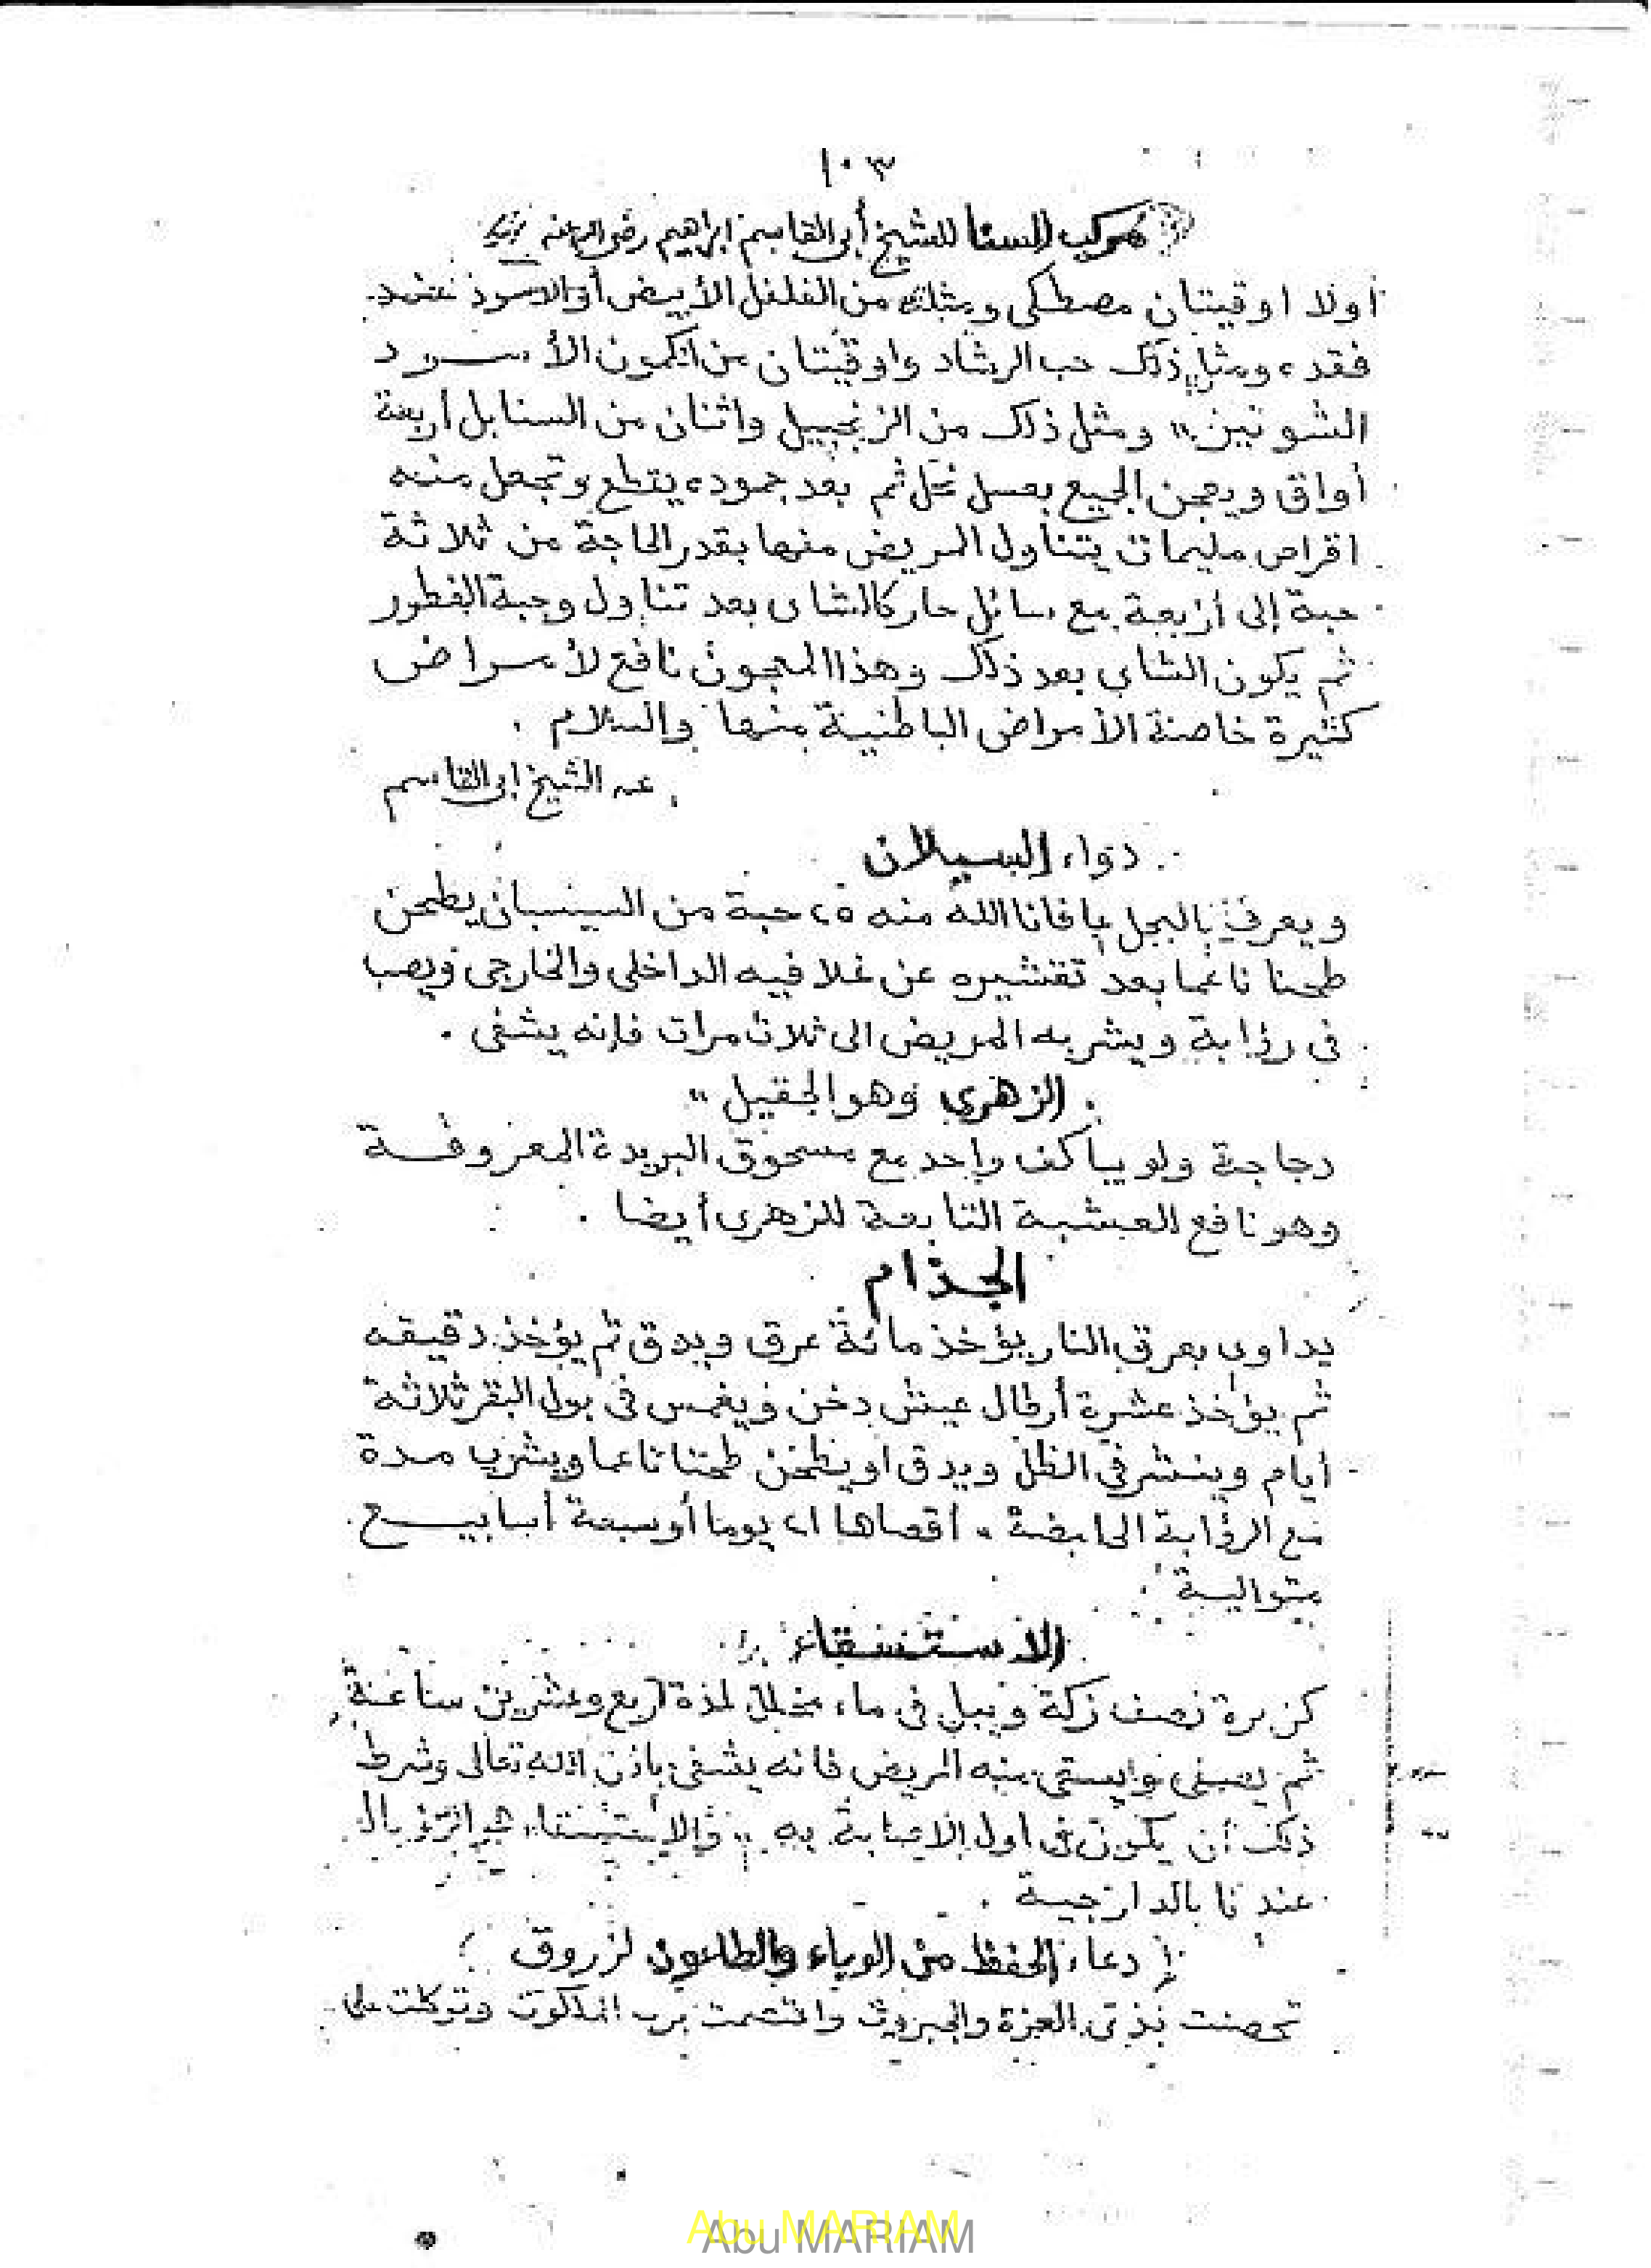 ١٠٣
مركب السنا للشيخ أبى القاسم ابراهيم رضى الله عنه
أولا اوقيتان مصطكى ومثله من الفلفل الأبيض أو الاسود عند
فقده ومثل ذلك حب الرشاد واوقيتان من الكمون الأسود
الشونيز" ومثل ذلك من الزنجبيل واثنان من السنابل أربعة
أواق ويعجن الجميع بعسل نحل ثم بعد جموده يقطع وتجعل منه
اقراص مليمات يتناول المريض منها بقدر الحاجة من ثلاثة
حبة إلى أربعة مع سائل حار كالشاى بعد تناول وجبة الفطور
ثم يكون الشاى بعد ذلك وهذا المعجون نافع لأمراض
كثيرة خاصة الأمراض الباطنية منها والسلام .
عن الشيخ ابى القاسم
دواء السيلان
ويعرف بالبجل عافانا الله منه ٢٥ حبة من السيسبان يطحن
طحنا ناعما بعد تقشيره عن غلافيه الداخلى والخارجى ويصب
فى رؤابة ويشربه المريض الى ثلاث مرات فإنه يشفى .
الزهرى وهو الجقيل "
دجاجة ولو بيأكف واحد مع مسحوق البريدة المعروفة
وهو نافع العشبة التابعة للزهرى أيضا .
الجذام
يداوى بعرق النار يؤخذ مائة عرق ويدق ثم يؤخذ دقيقه
ثم يؤخذ عشرة أرطال عيش دخن ويغمس فى بول البقر ثلاثة
أيام وينشر فى الظل ويدق او يطحن طحنا ناعما ويشرب مدة
مع الرؤابة الحامضة . أقصاها ٢١ يوما أو سبعة أسابيع
متوالية .
الاستسقاء
كزبرة نصف زكة ويبل فى ماء لمدة أربع وعشرين ساعة
ثم يصفى ويستقى منه المريض فانه يشفى باذن الله تعالى وشرط
ذلك أن يكون فى اول الاصابة به . والاستسقاء هو
عندنا بالدارجية .
دعاء الحفظ من الوباء والطاعون لزروق
تحصنت بذى العزة والجبروت واعتصمت برب الملكوت وتوكلت على
Abu MARIAM